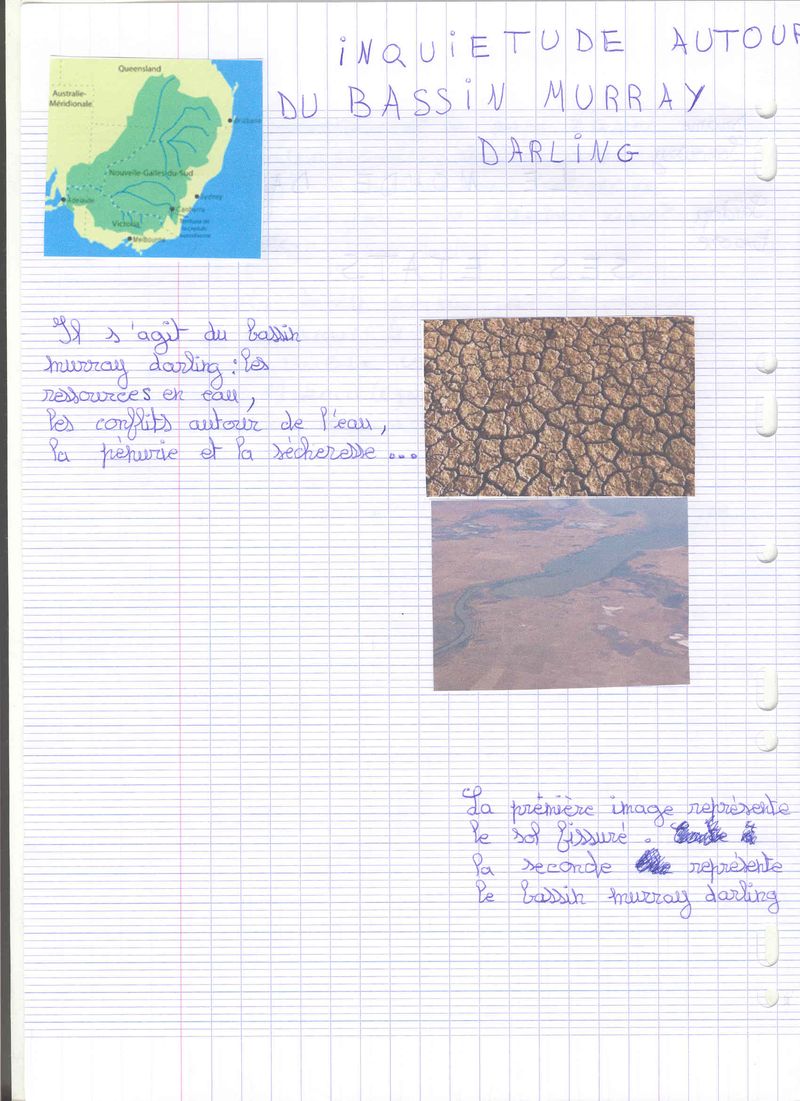 iNQUiETUDE AUTOUR
DU BASSiN MURRAY
DARLiNG
Queensland
Australie-
Méridionale
Brisbane
Nouvelle-Galles-du-Sud
Adelaide
Sydney
Canberra
Victoria
Territoire de
la Capitale
australienne
Melbourne
Il s'agit du bassin
murray darling : les
ressources en eau,
les conflits autour de l'eau,
la pénurie et la sécheresse ...
La prémière image représente
le sol fissuré .
la seconde représente
le bassin murray darling